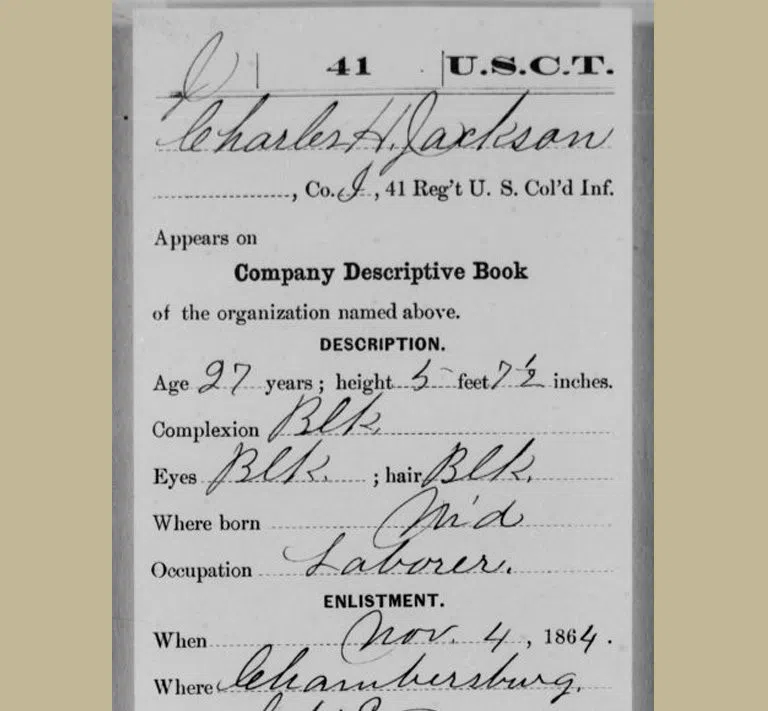 J | 41 | U.S.C.T.
Charles H. Jackson
, Co. I, 41 Reg't U. S. Col'd Inf.
Appears on
Company Descriptive Book
of the organization named above.
DESCRIPTION.
Age 27 years; height 5 feet 7 1/2 inches.
Complexion Blk.
Eyes Blk. ; hair Blk.
Where born M'd
Occupation Laborer.
ENLISTMENT.
When Nov. 4, 1864.
Where Chambersburg.